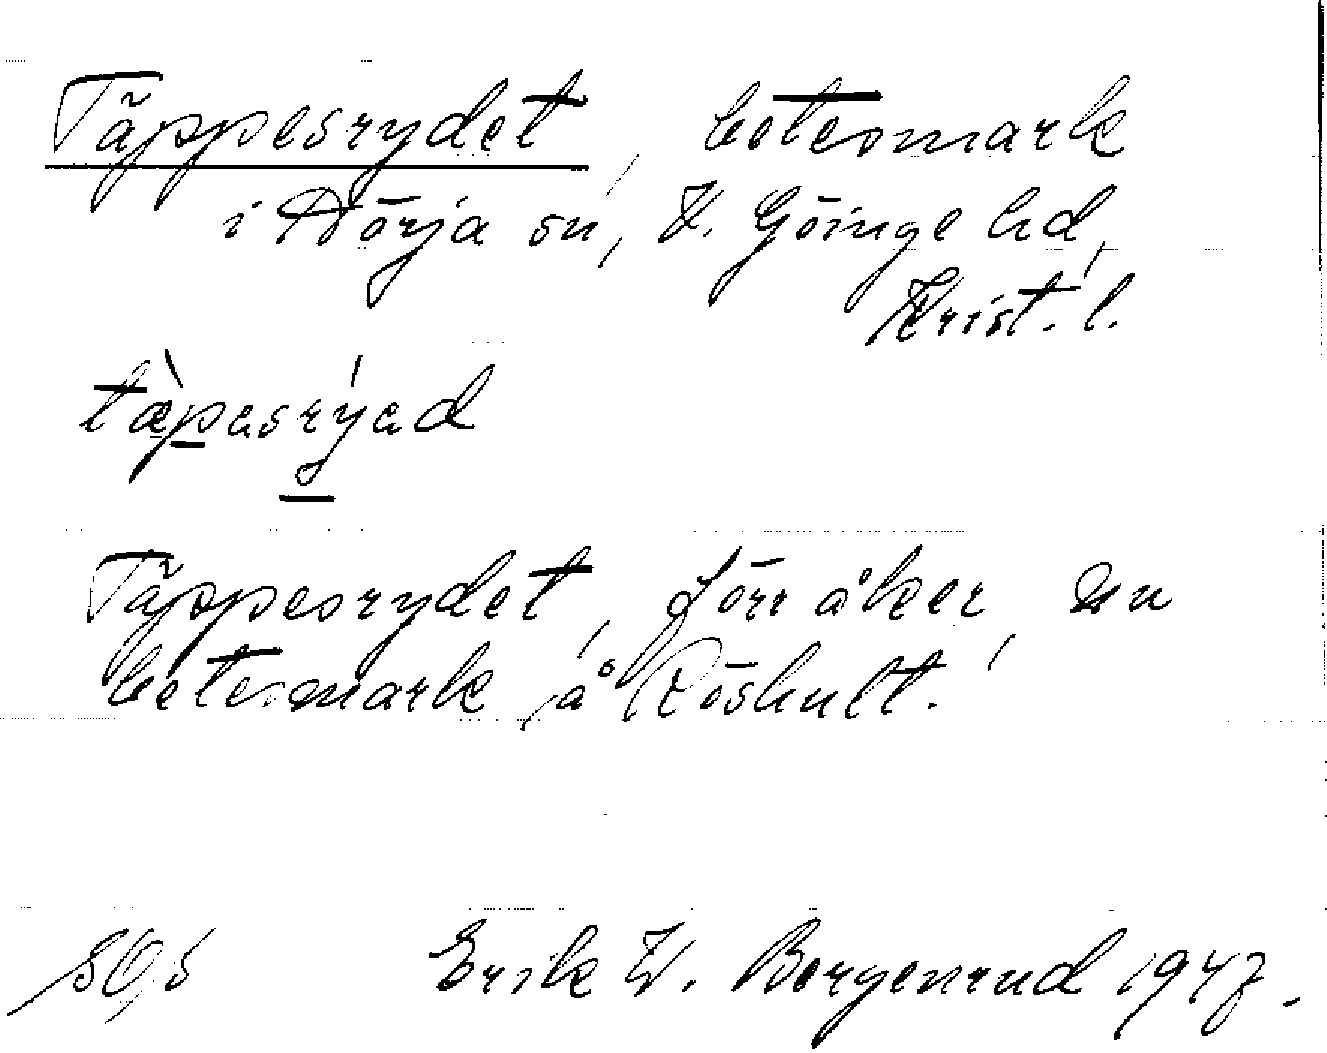 Täppesrydet, betesmark
i Nörja sn, V. Göinge hd,
Krist. l.
tæ̀pasrýad
Täppesrydet, förr åker, nu
betesmark, å Röshult.
Erik W. Borgenrud 1947.